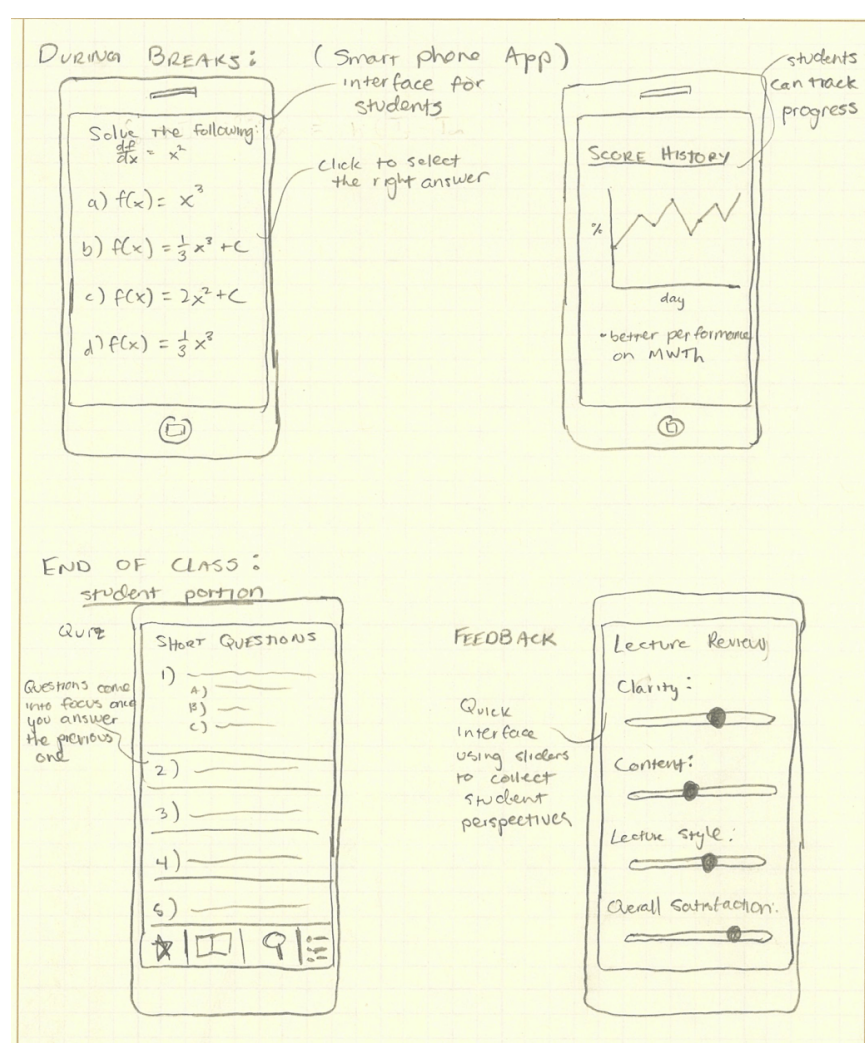 DURING BREAKS: (Smart phone App)
interface for
students
Solve the following:
df/dx = x²
a) f(x) = x³
b) f(x) = 1/3 x³ + C
c) f(x) = 2x² + C
d) f(x) = 1/3 x³
click to select
the right answer
students
can track
progress
SCORE HISTORY
%
day
• better performance
on MWTh
END OF CLASS:
student portion
Quiz
Questions come
into focus once
you answer
the previous
one
SHORT QUESTIONS
1)
A)
B)
C)
2)
3)
4)
5)
FEEDBACK
Quick
interface
using sliders
to collect
student
perspectives
Lecture Review
Clarity:
Content:
Lecture Style:
Overall Satisfaction: